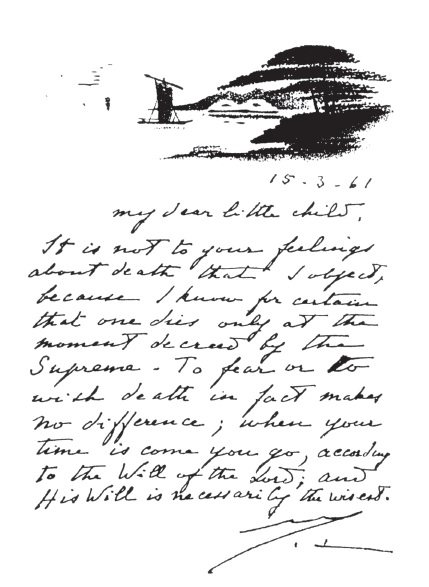 15-3-61
my dear little child,
It is not to your feelings
about death that I object,
because I know for certain
that one dies only at the
moment decreed by the
Supreme - To fear or to
wish death in fact makes
no difference; when your
time is come you go, according
to the Will of the Lord; and
His Will is necessarily the wisest.